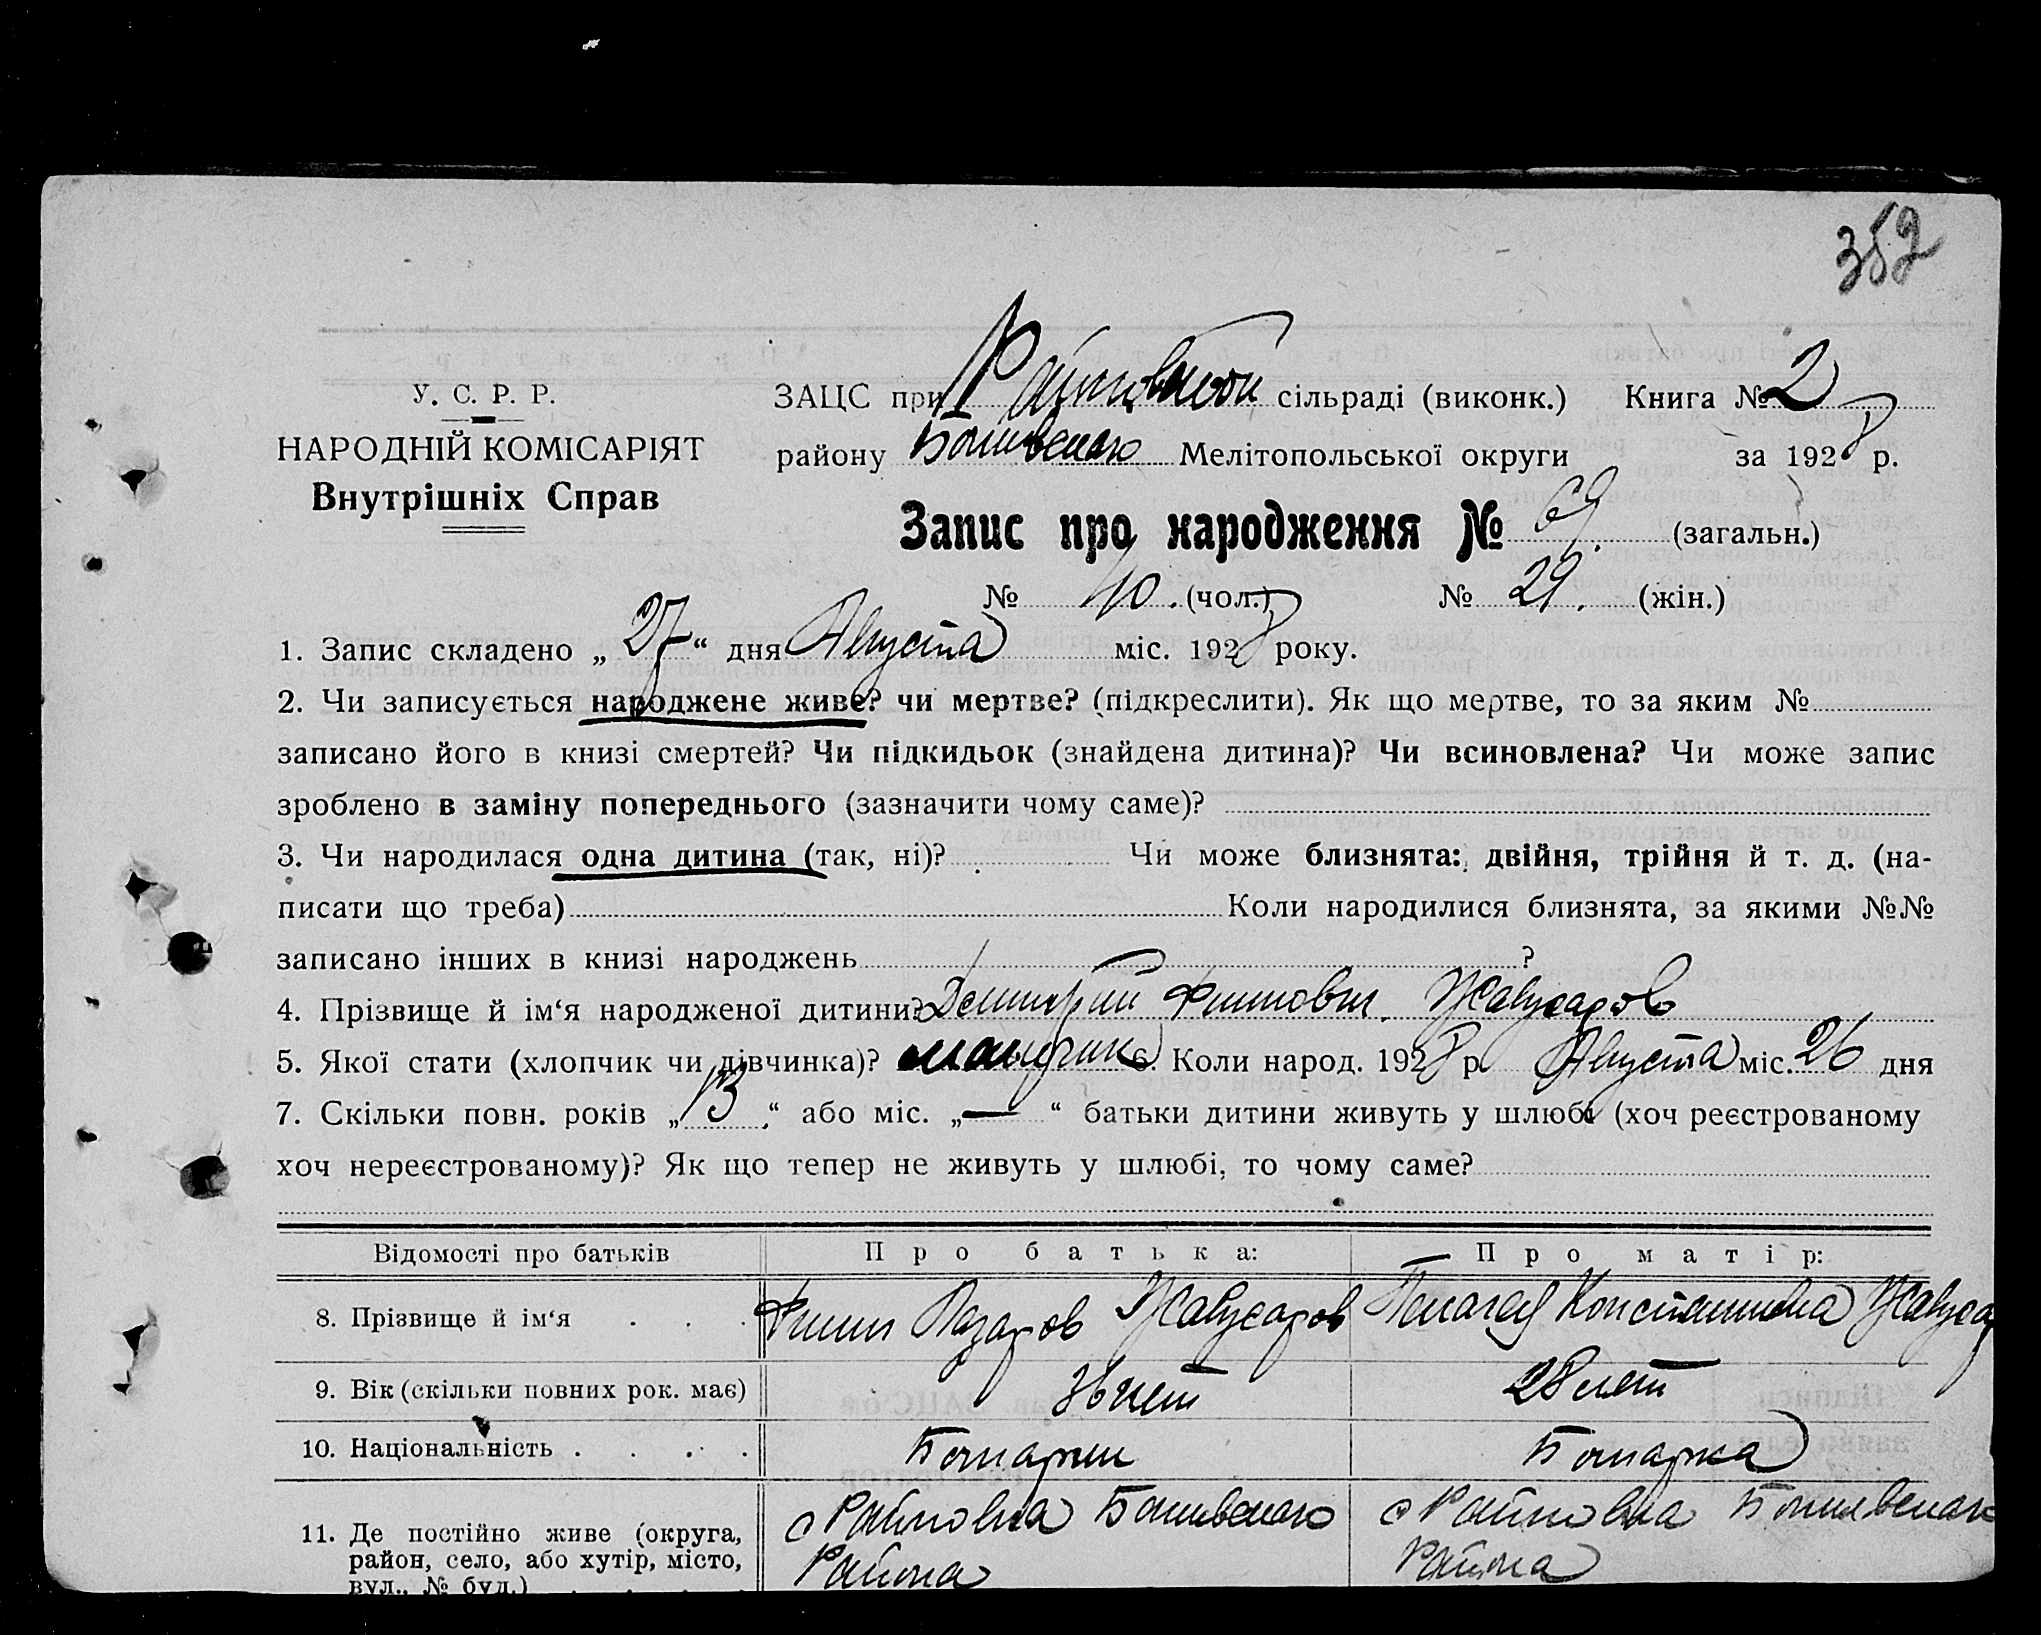 352
У. С. Р. Р.
НАРОДНІЙ КОМІСАРІЯТ
Внутрішніх Справ
ЗАЦС при Райновской сільраді (виконк.) Книга № 2
району Ботевского Мелітопольської округи за 1928 р.
Запис про народження № 69. (загальн.)
№ 40. (чол.) № 29. (жін.)
1. Запис складено „27“ дня Августа міс. 1928 року.
2. Чи записується народжене живе? чи мертве? (підкреслити). Як що мертве, то за яким №
записано його в книзі смертей? Чи підкидьок (знайдена дитина)? Чи всиновлена? Чи може запис
зроблено в заміну попереднього (зазначити чому саме)?
3. Чи народилася одна дитина (так, ні)? Чи може близнята: двійня, трійня й т. д. (на-
писати що треба) Коли народилися близнята, за якими №№
записано інших в книзі народжень ?
4. Прізвище й ім‘я народженої дитини?
5. Якої стати (хлопчик чи дівчинка)? мальчик 6. Коли народ. 1928 р. Августа міс. 26 дня
7. Скільки повн. років „13“ або міс. „—“ батьки дитини живуть у шлюбі (хоч реєстрованому
хоч нереєстрованому)? Як що тепер не живуть у шлюбі, то чому саме?
Відомості про батьків Про батька: Про матір:
8. Прізвище й ім‘я . . . Пелагея Константиновна
9. Вік (скільки повних рок. має) 36 лет 28 лет
10. Національність . . . . Болгарин Болгарка
11. Де постійно живе (округа,
район, село, або хутір, місто,
вул., № буд.) . . . .
с Райновка Ботевского
Района
с Райновка Ботевского
Района